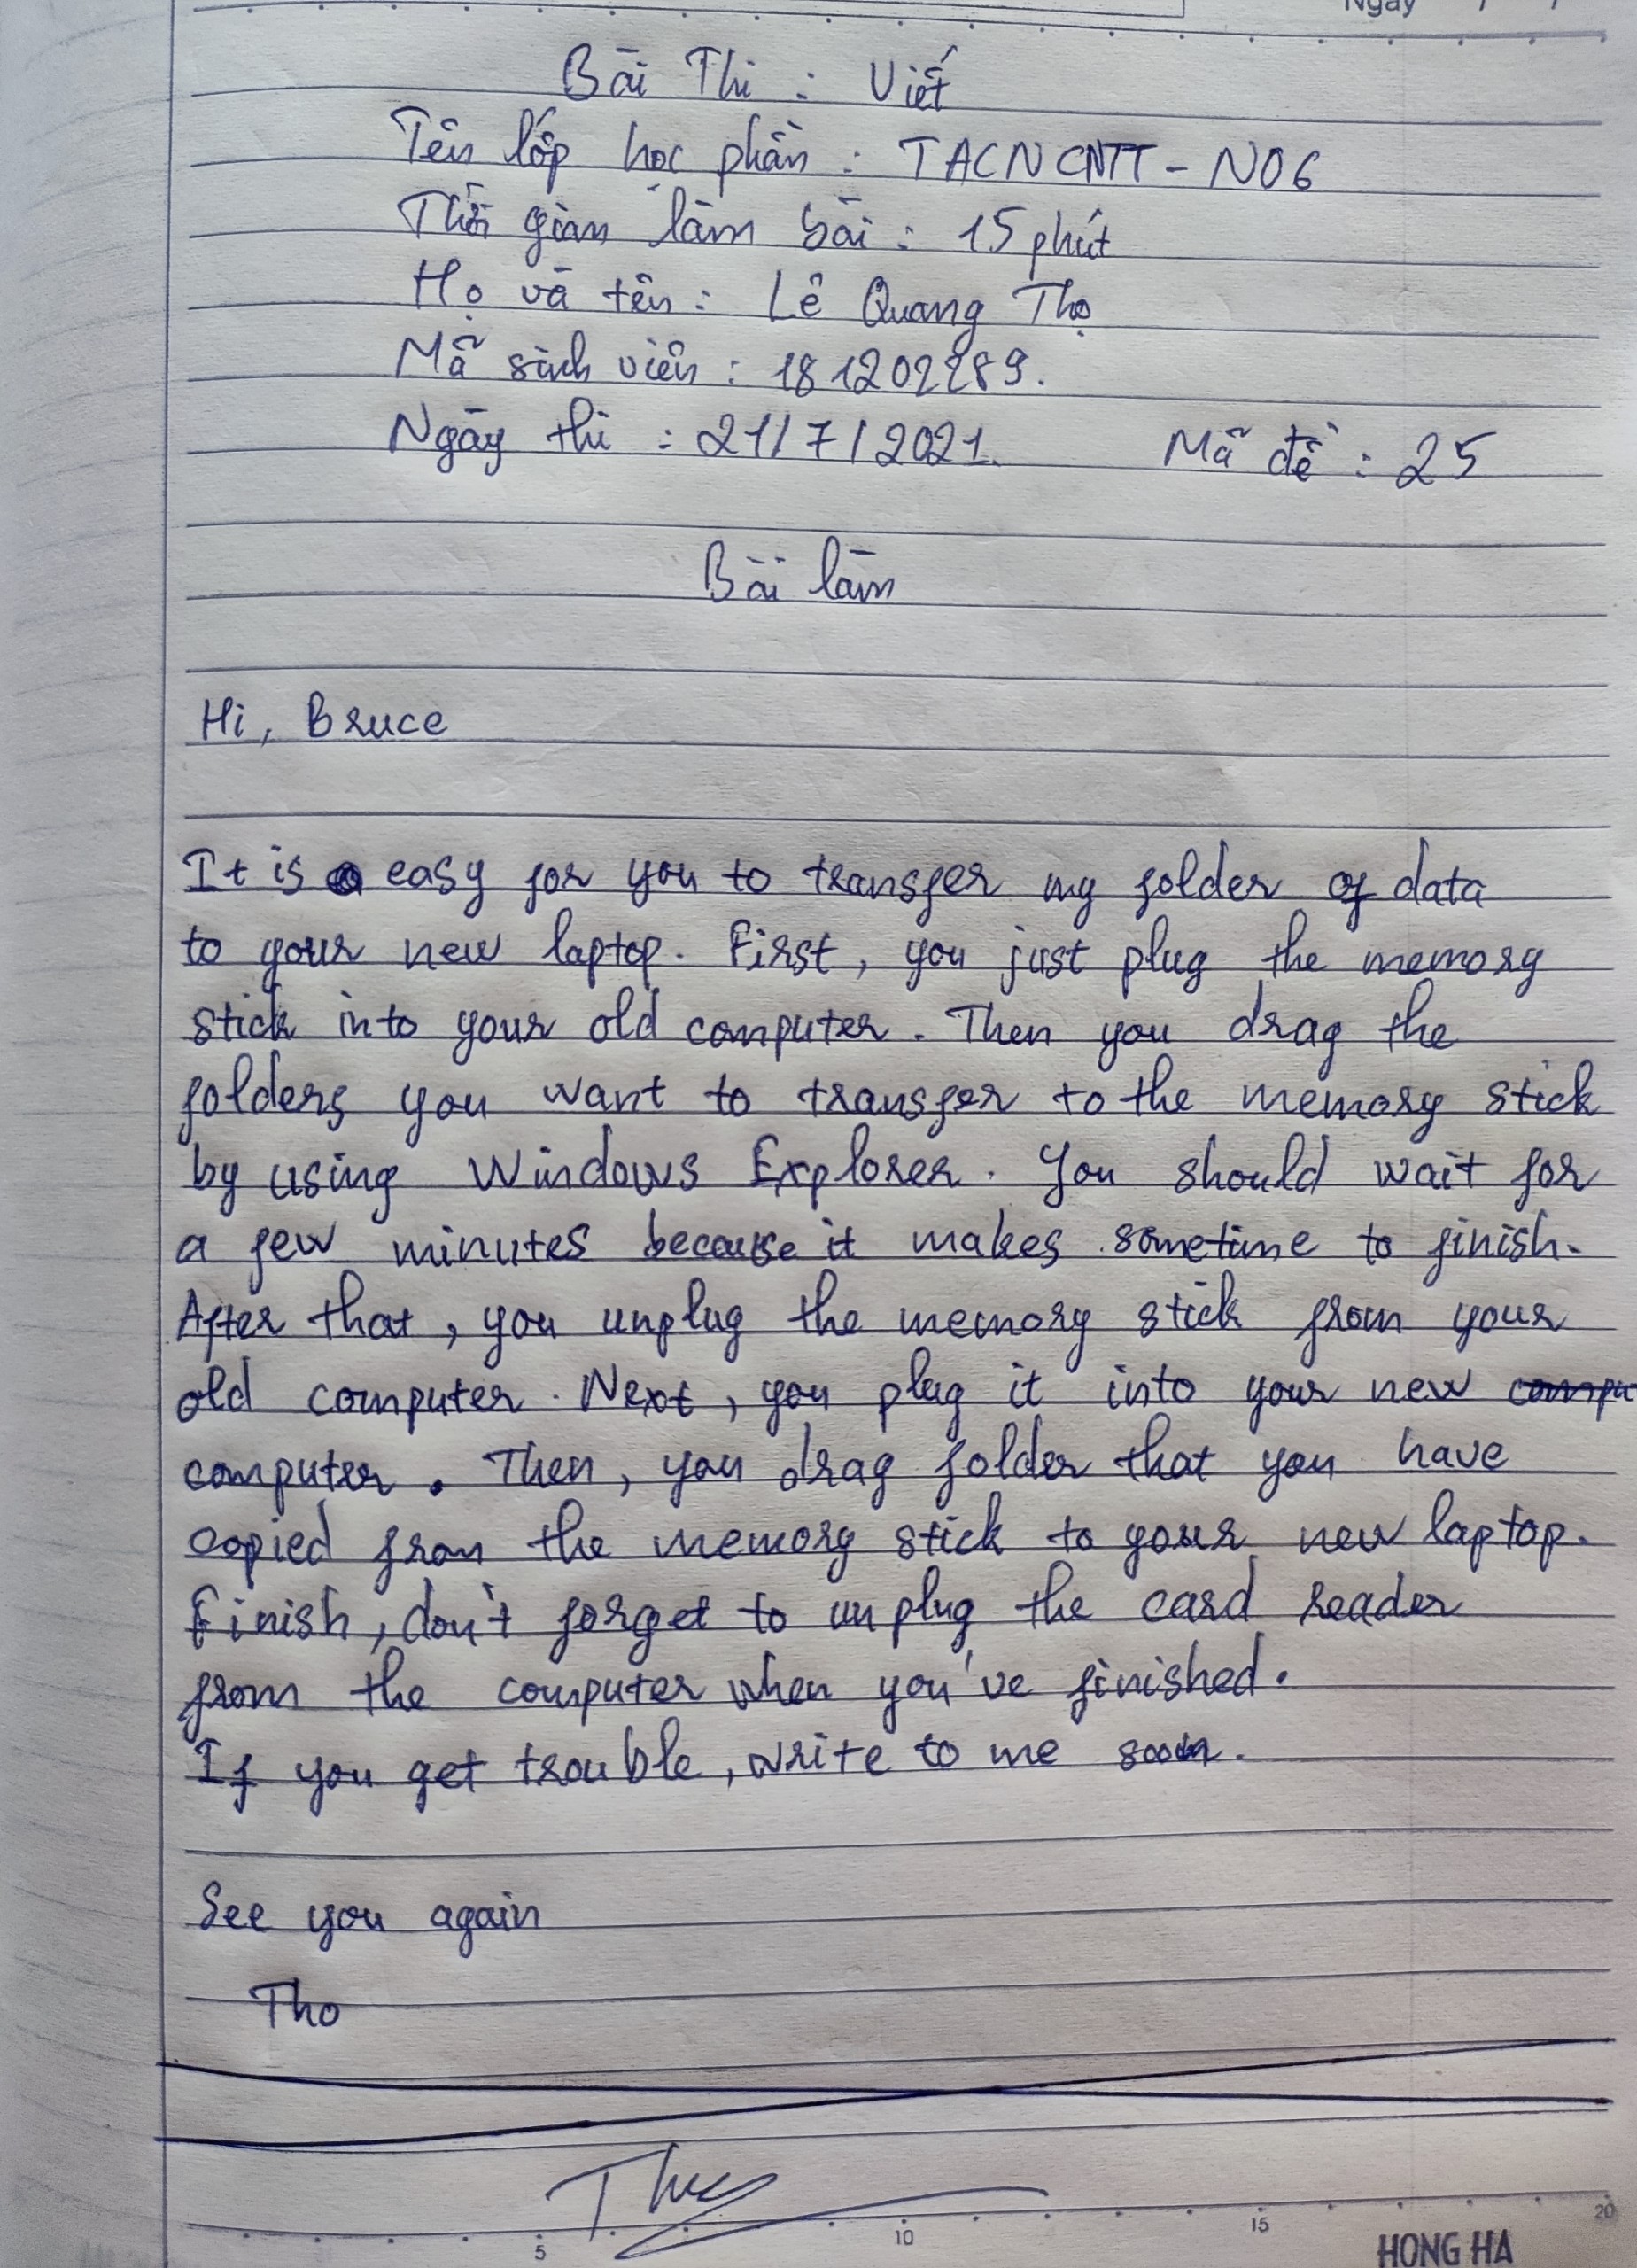 Ngày / /
Bài Thi : Viết
Tên lớp học phần : TACNCNTT - N06
Thời gian làm bài : 15 phút
Họ và tên : Lê Quang Thọ
Mã sinh viên : 181202289.
Ngày thi : 21/7/2021. Mã đề : 25
Bài làm
Hi, Bruce
It is easy for you to transfer my folder of data
to your new laptop. First, you just plug the memory
stick into your old computer. Then you drag the
folders you want to transfer to the memory stick
by using Windows Explorer. You should wait for
a few minutes because it makes sometime to finish.
After that, you unplug the memory stick from your
old computer. Next, you plug it into your new compu
computer. Then, you drag folder that you have
copied from the memory stick to your new laptop.
Finish, don't forget to unplug the card reader
from the computer when you've finished.
If you get trouble, write to me soon.
See you again
Tho
5 10 15 20
HONG HA